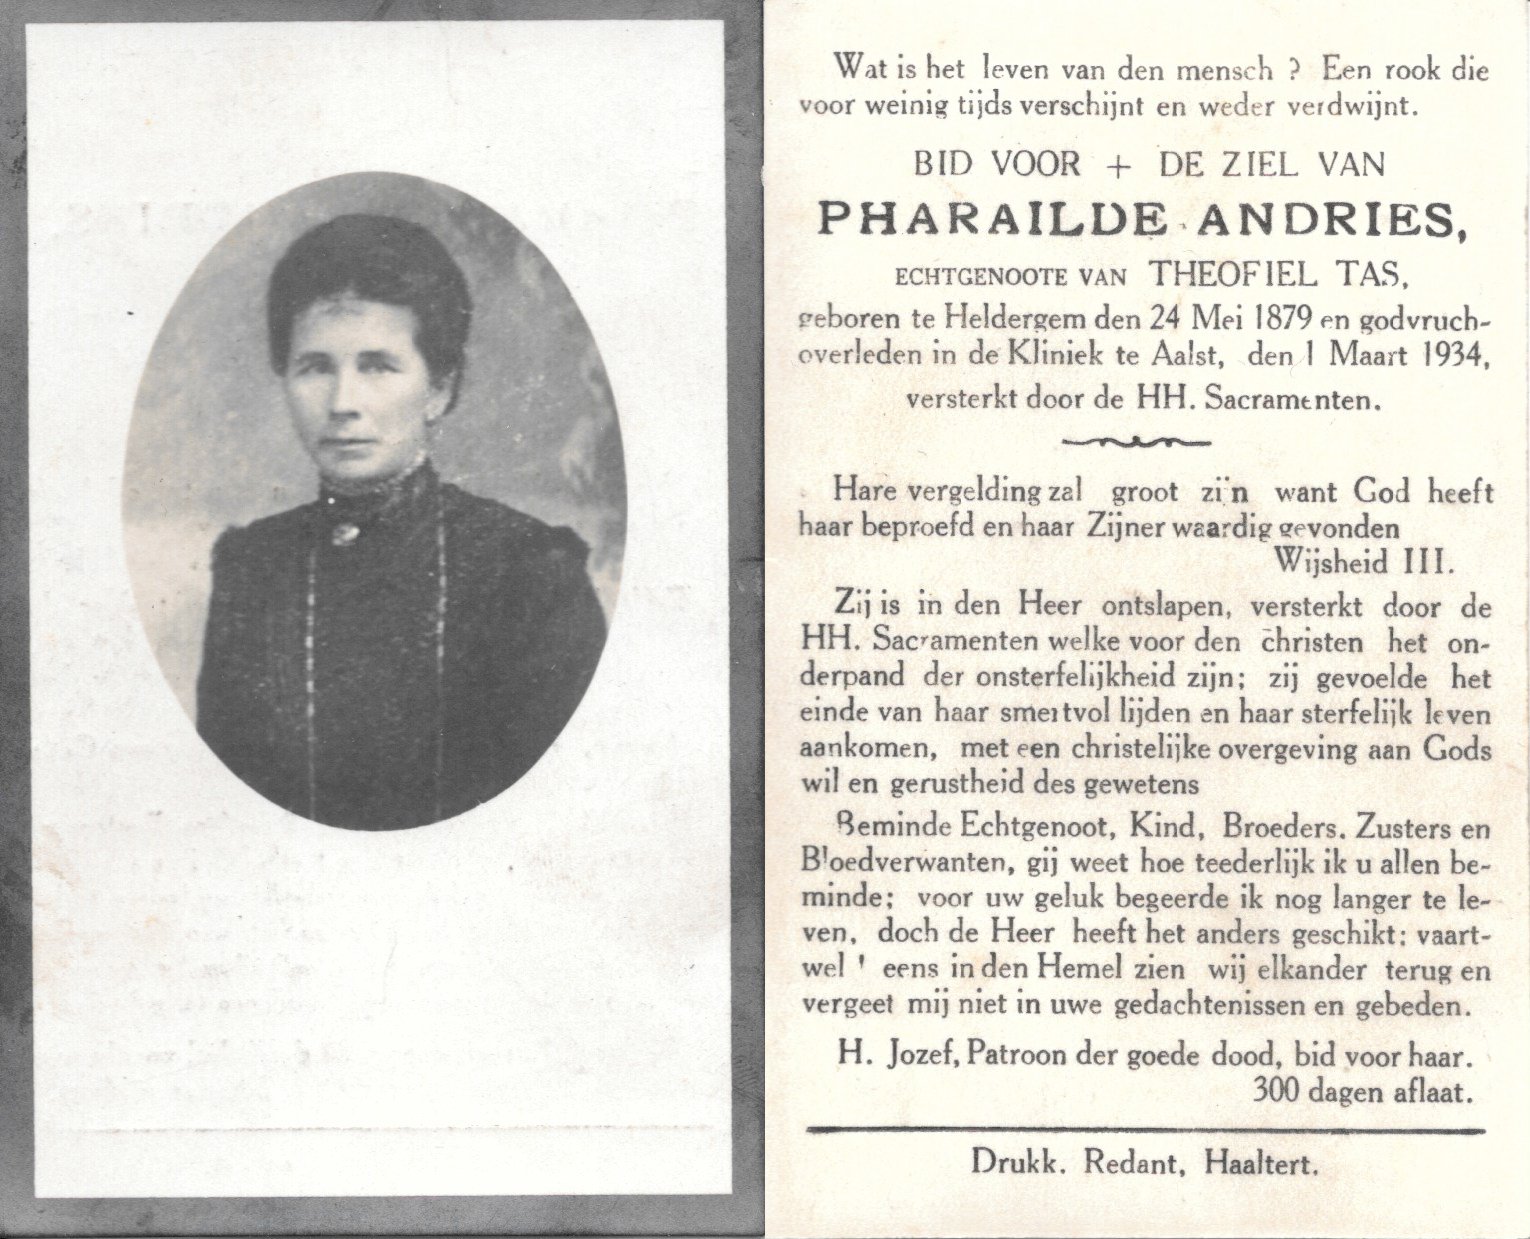 Wat is het leven van den mensch ? Een rook die
voor weinig tijds verschijnt en weder verdwijnt.
BID VOOR + DE ZIEL VAN
PHARAILDE ANDRIES,
ECHTGENOOTE VAN THEOFIEL TAS,
geboren te Heldergem den 24 Mei 1879 en godvruch-
overleden in de Kliniek te Aalst, den 1 Maart 1934,
versterkt door de HH. Sacramenten.
Hare vergelding zal groot zijn want God heeft
haar beproefd en haar Zijner waardig gevonden
Wijsheid III.
Zij is in den Heer ontslapen, versterkt door de
HH. Sacramenten welke voor den christen het on-
derpand der onsterfelijkheid zijn; zij gevoelde het
einde van haar smertvol lijden en haar sterfelijk leven
aankomen, met een christelijke overgeving aan Gods
wil en gerustheid des gewetens
Beminde Echtgenoot, Kind, Broeders, Zusters en
Bloedverwanten, gij weet hoe teederlijk ik u allen be-
minde; voor uw geluk begeerde ik nog langer te le-
ven, doch de Heer heeft het anders geschikt; vaart-
wel ' eens in den Hemel zien wij elkander terug en
vergeet mij niet in uwe gedachtenissen en gebeden.
H. Jozef, Patroon der goede dood, bid voor haar.
300 dagen aflaat.
Drukk. Redant, Haaltert.